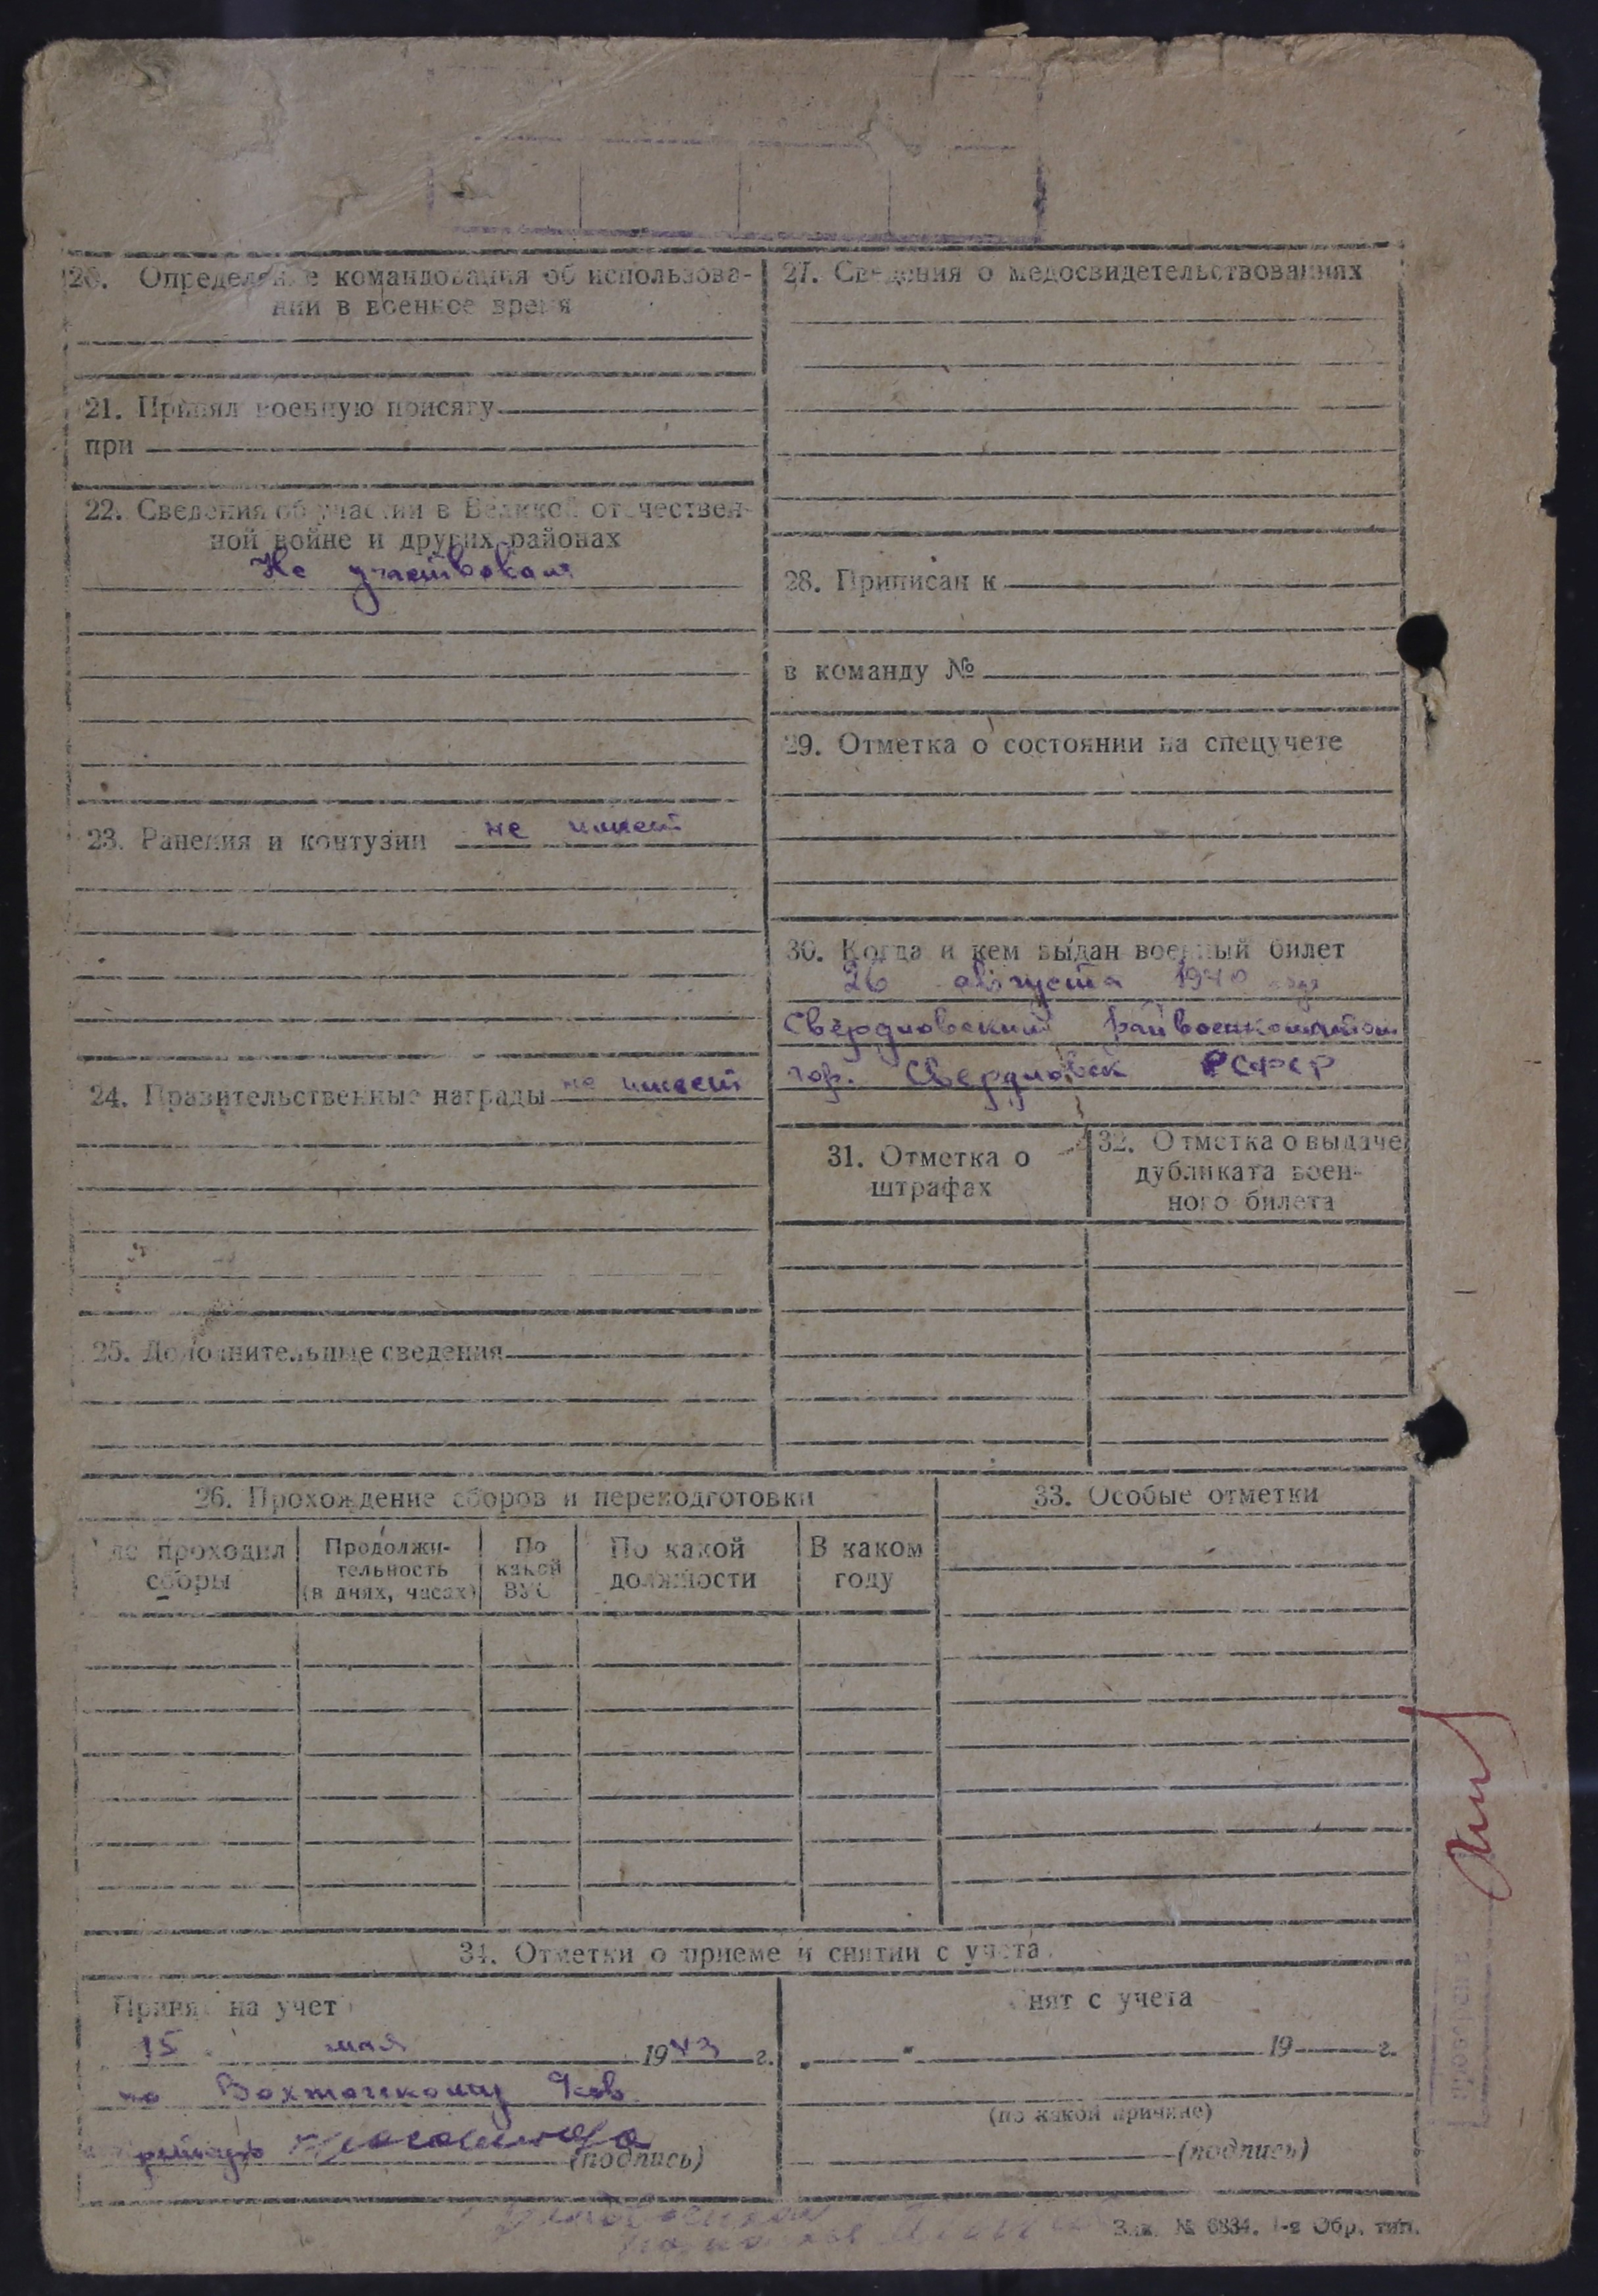 20. Определение командования об использова-
нии в военное время
21. Принял военную присягу
при
22. Сведения об участии в Великой отечествен-
ной войне и других районах
Не участвовал
23. Ранения и контузии не имеет
24. Правительственные награды не имеет
25. Дополнительные сведения
27. Сведения о медосвидетельствованиях
28. Приписан к
в команду №
29. Отметка о состоянии на спецучете
30. Когда и кем выдан военный билет
26 августа 1940 года
Свердловский Райвоенкоматом
гор. Свердловск РСФСР
31. Отметка о
штрафах
32. Отметка о выдаче
дубликата воен-
ного билета
26. Прохождение сборов и переподготовки
Где проходил
сборы
Продолжи-
тельность
(в днях, часах)
По
какой
ВУС
По какой
должности
В каком
году
33. Особые отметки
34. Отметки о приеме и снятии с учета.
Принят на учет
15 мая 1943 г.
по
(подпись)
Снят с учета
„ " 19 г.
(по какой причине)
(подпись)
Зак. № 6834. 1-я Обр. тип.